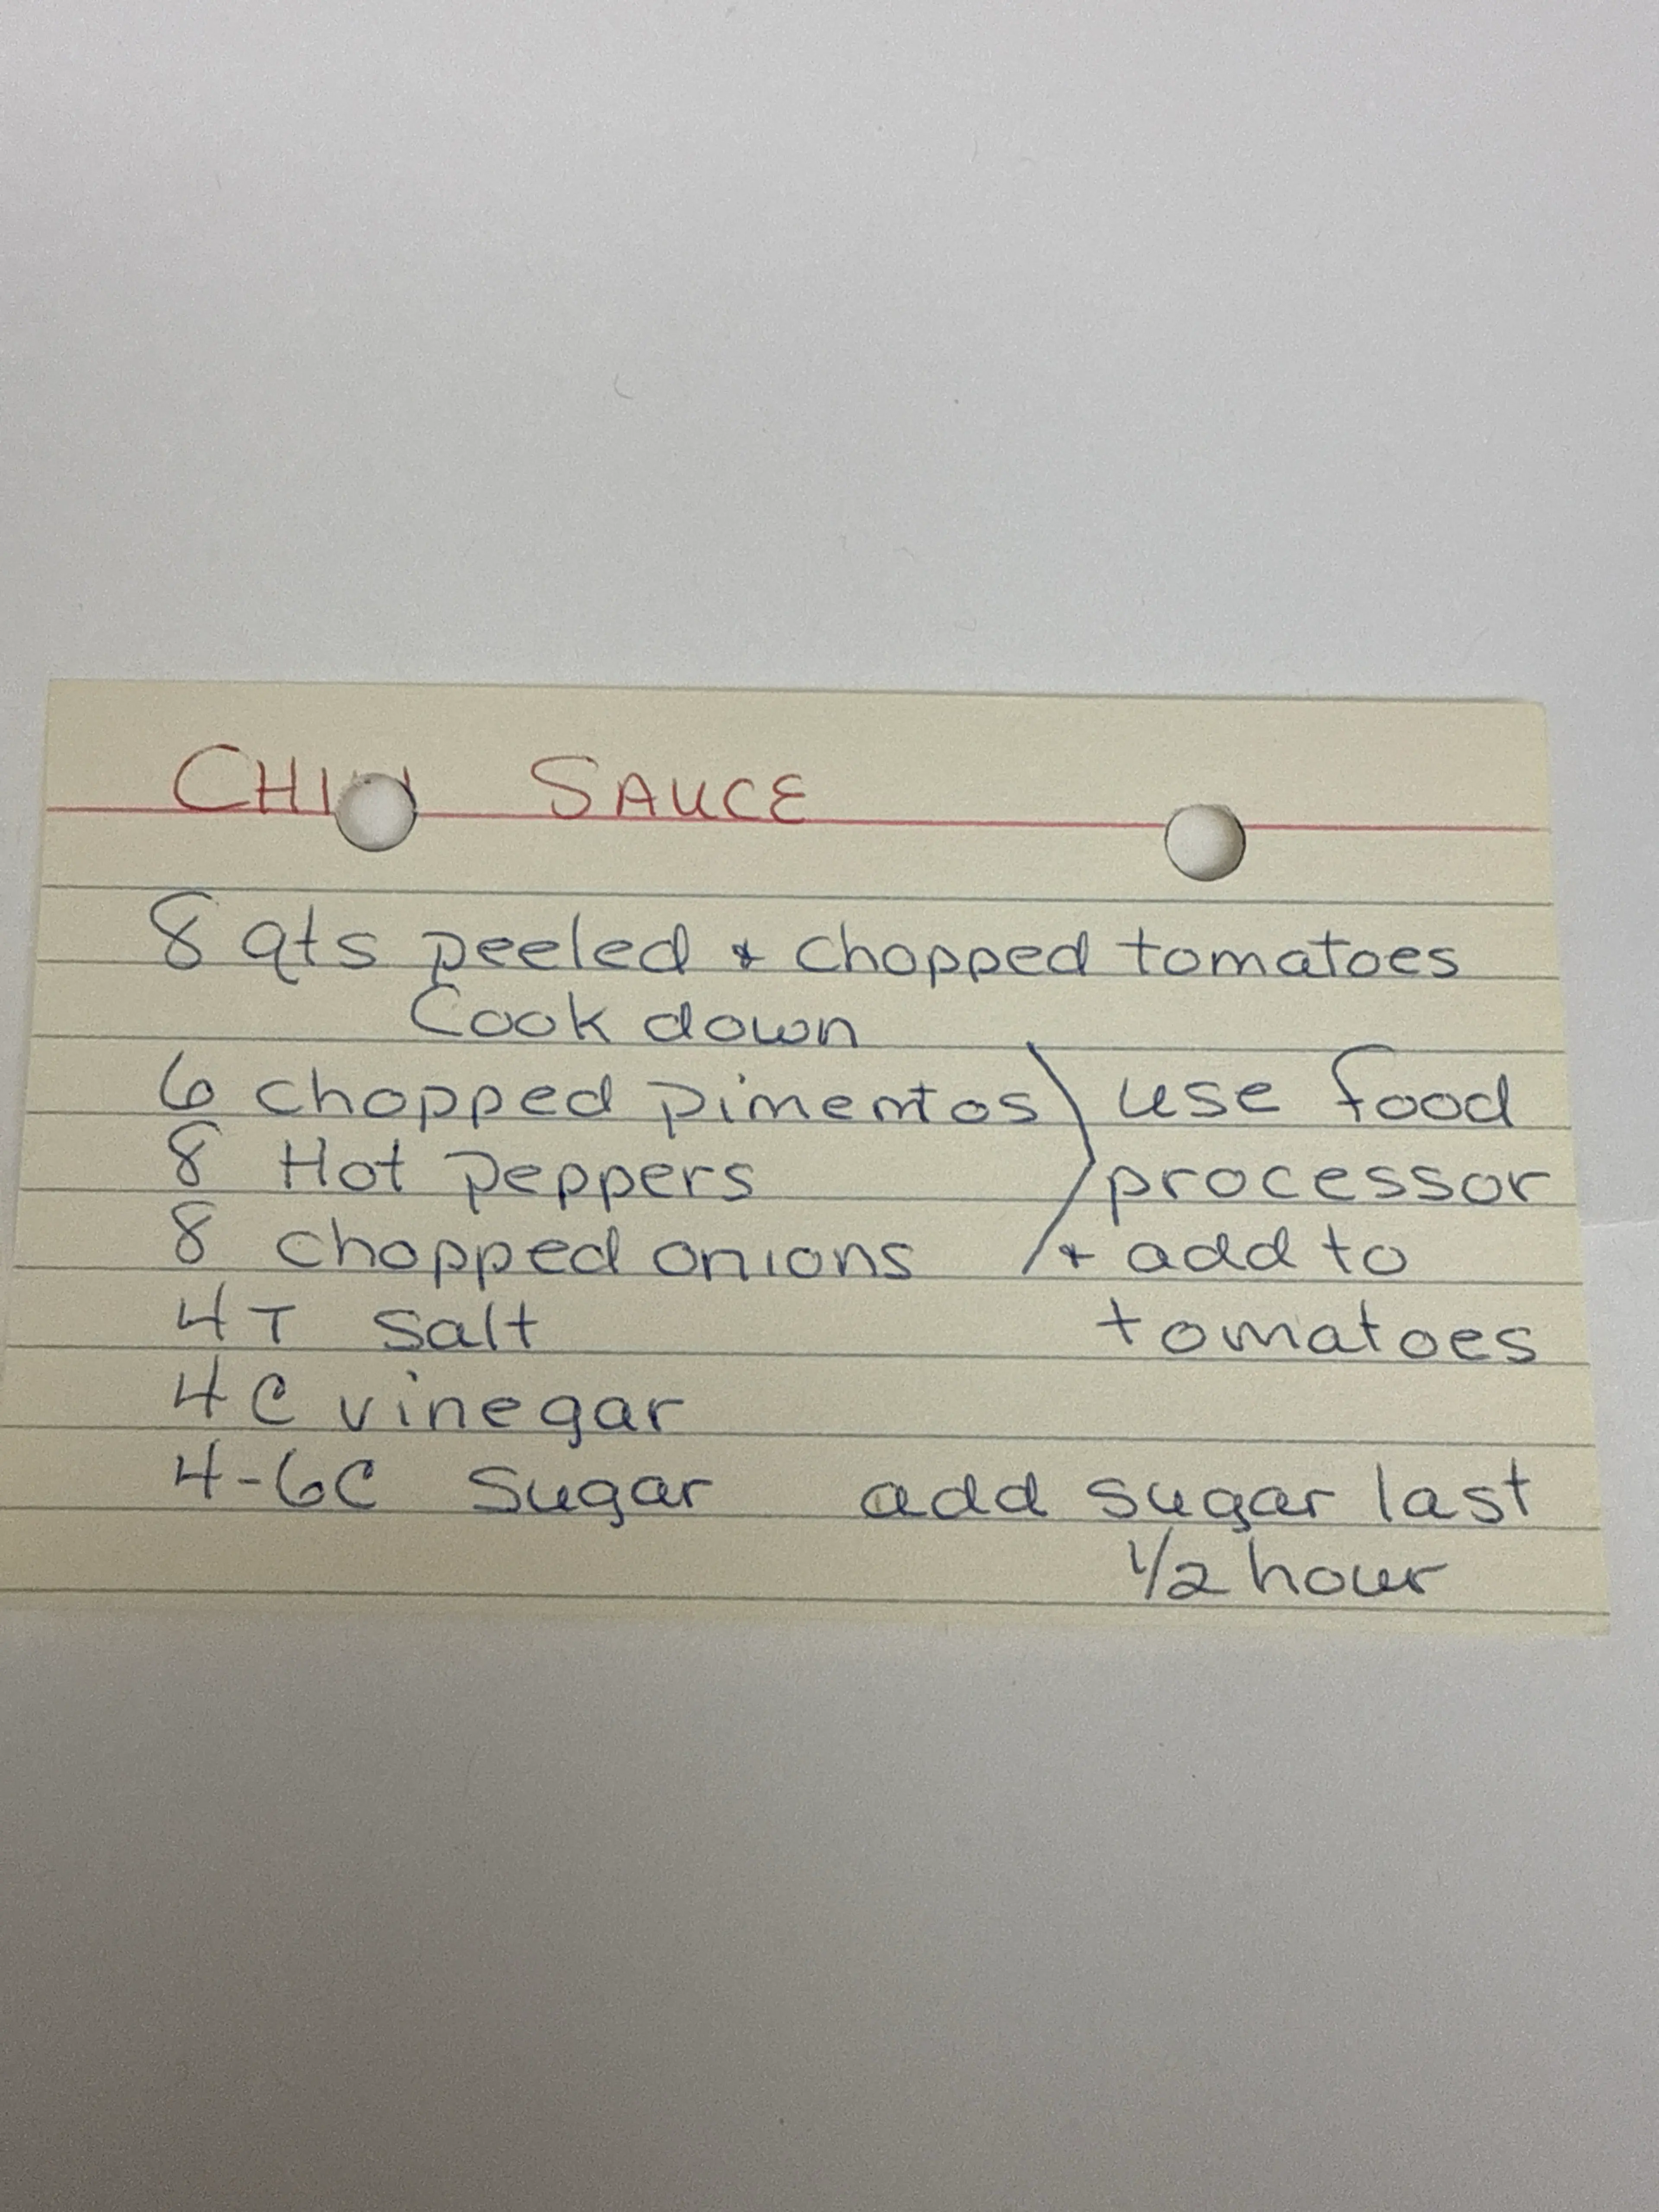 CHILI SAUCE
8 qts peeled & chopped tomatoes
Cook down
6 chopped pimentos use food
8 Hot peppers processor
8 chopped onions & add to
4 T salt tomatoes
4 C vinegar
4-6C Sugar add sugar last
1/2 hour